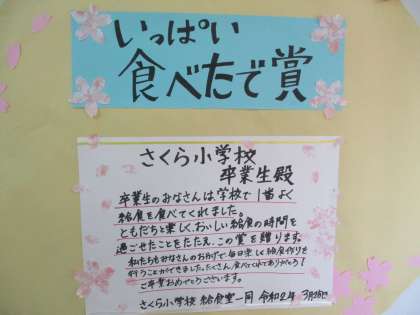 いっぱい
食べたで賞
さくら小学校
卒業生殿
卒業生のみなさんは、学校で1番よく
給食を食べてくれました。
ともだちと楽しく、おいしい給食の時間を
過ごせたことをたたえ、この賞を贈ります。
私たちもみなさんのおかげで、毎日楽しく給食作りを
行うことができました。たくさん食べてくれてありがとう!
ご卒業おめでとうございます。
さくら小学校 給食室一同 令和2年 3月